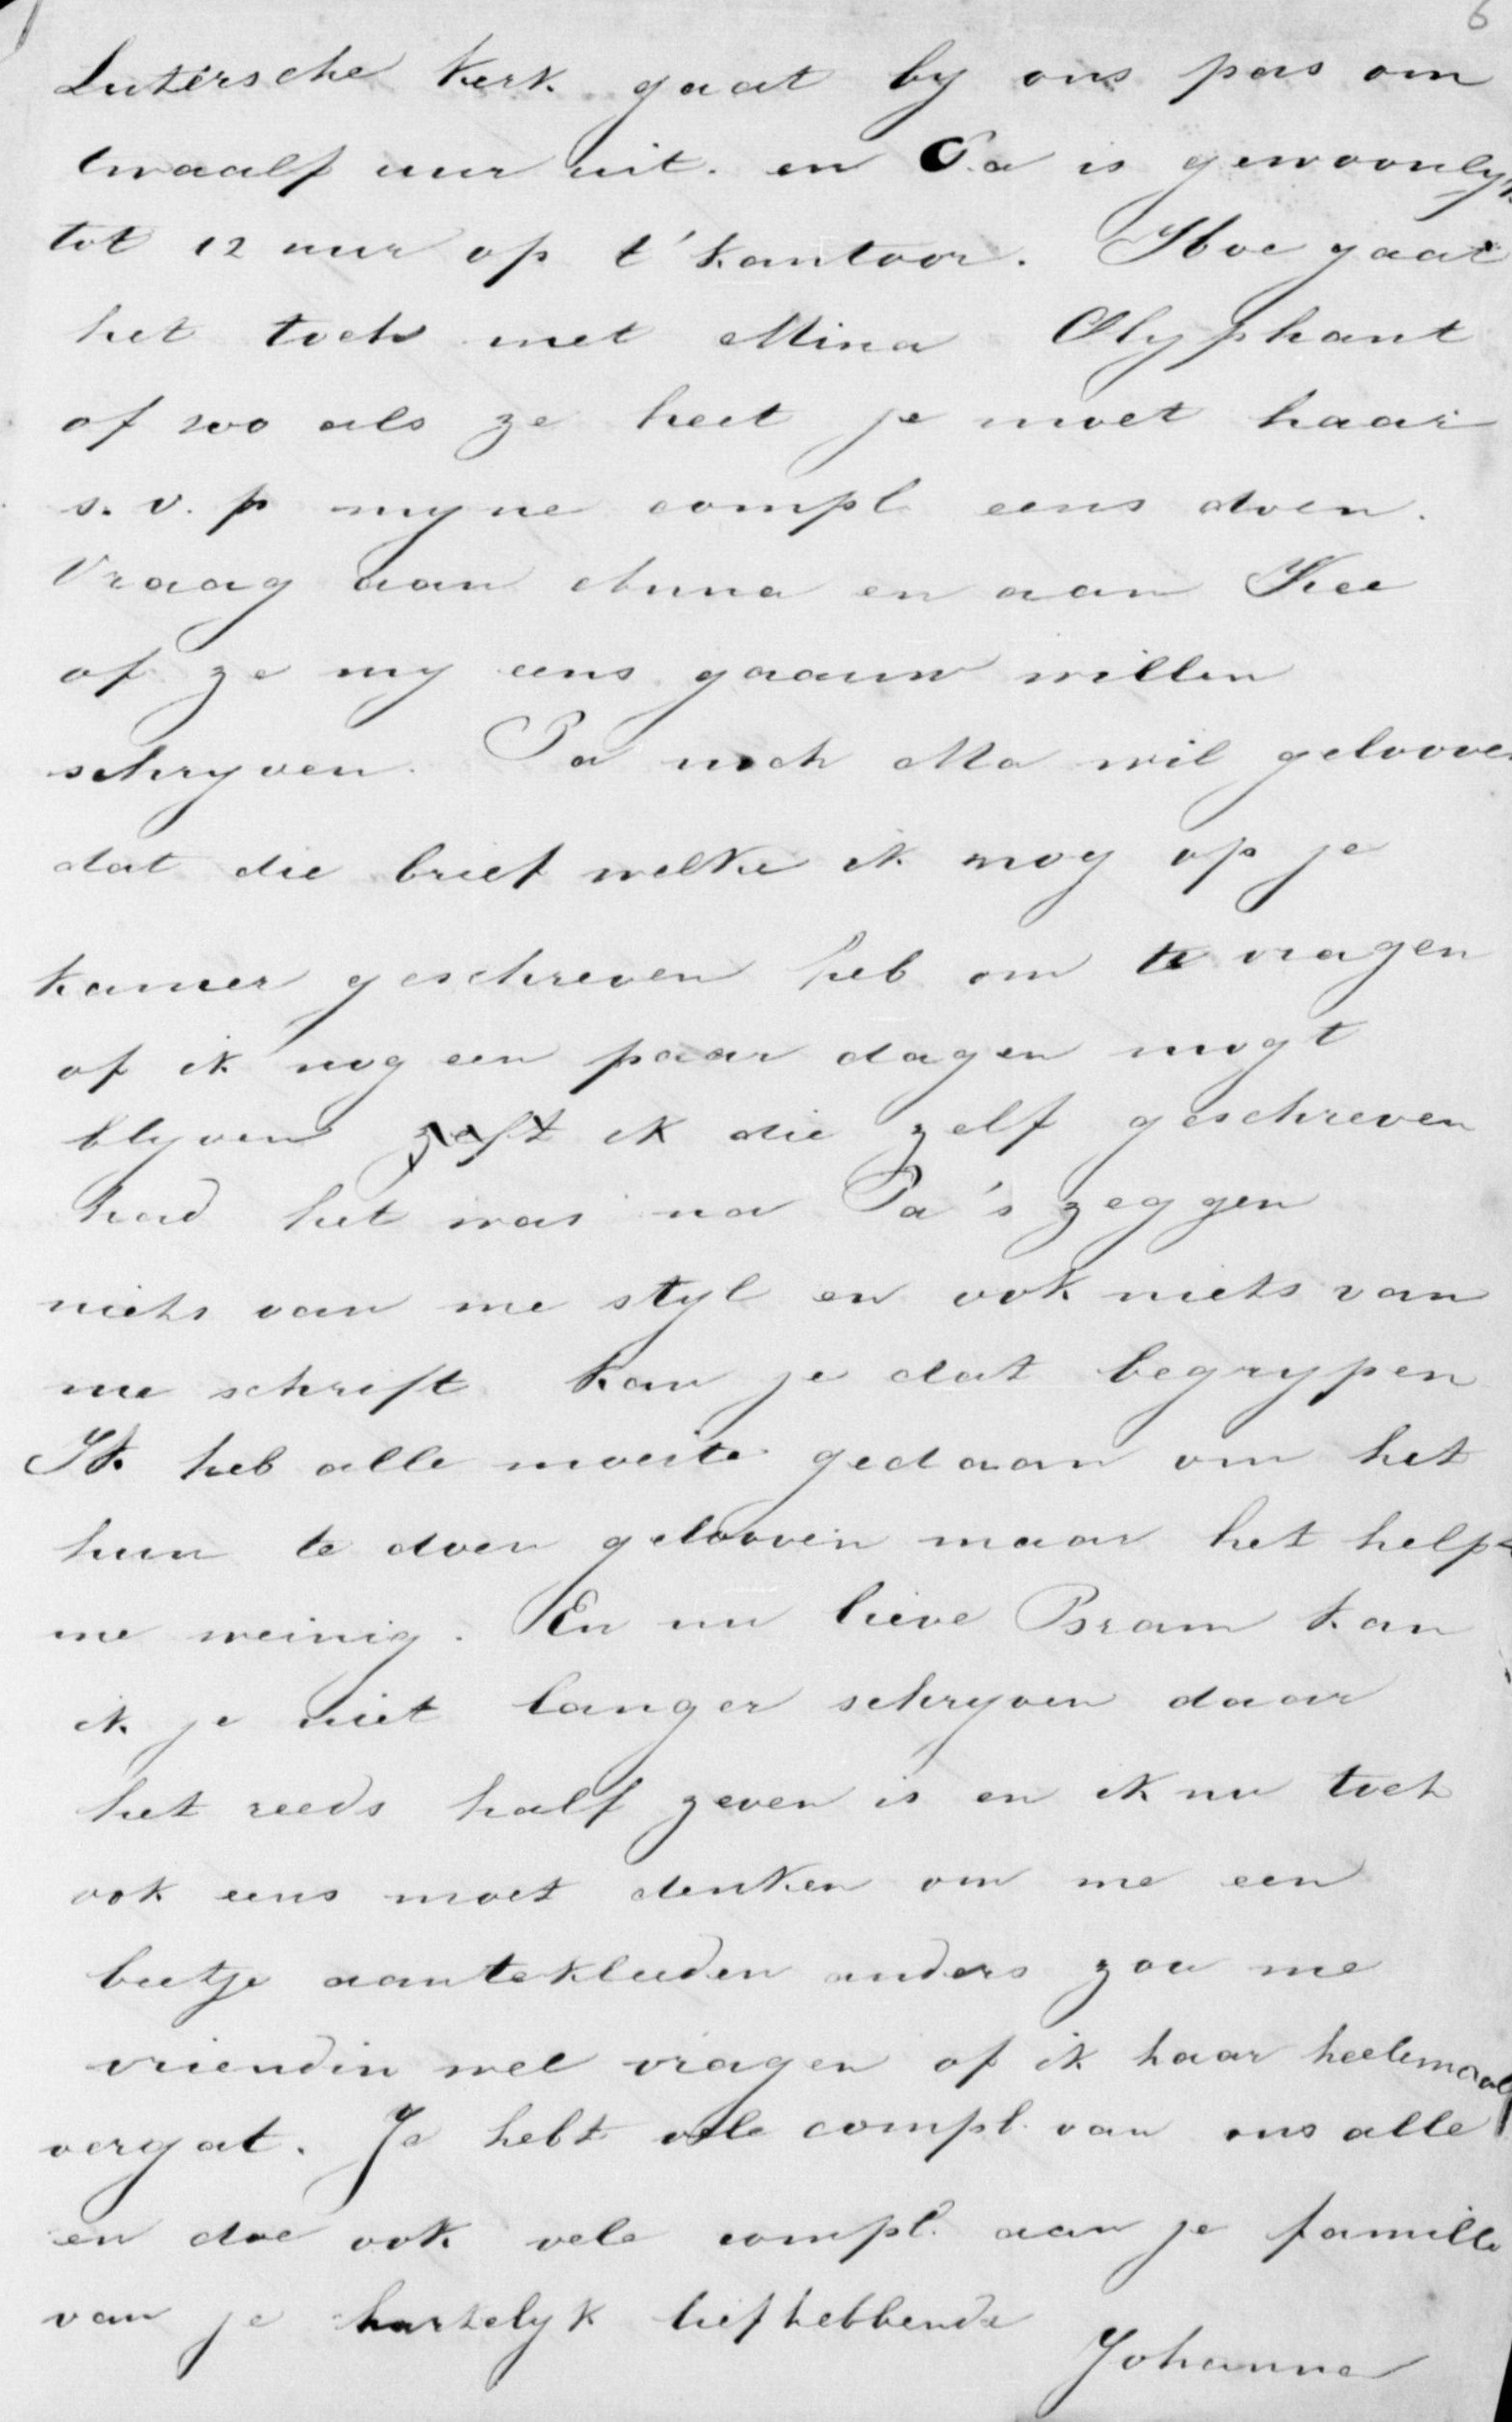 6
Lutersche kerk gaat by ons pas om
twaalf uur uit. en Pa is gewoonlyk
tot 12 uur op t' kantoor. Hoe gaat
het toch met Mina Olyphant
of zoo als ze heet je moet haar
s. v. p myne compl eens doen.
Vraag aan Anna en aan Kee
of ze my eens gaauw willen
schryven. Pa noch Ma wil gelooven
dat die brief welke ik nog op je
kamer geschreven heb om te vragen
of ik nog een paar dagen mogt
blyven ik die zelf geschreven
had het was na Pa's zeggen
niets van me styl en ook niets van
me schrift kan je dat begrypen
Ik heb alle moeite gedaan om het
hun te doen gelooven maar het helpt
me weinig. En nu lieve Bram kan
ik je niet langer schryven daar
het reeds half zeven is en ik nu toch
ook eens moet denken om me een
beetje aantekleeden anders zou me
vriendin wel vragen of ik haar heelemaal
vergat. Je hebt vele compl. van ons alle
en doe ook vele compl. aan je famille
van je hartelyk liefhebbende
Johanna